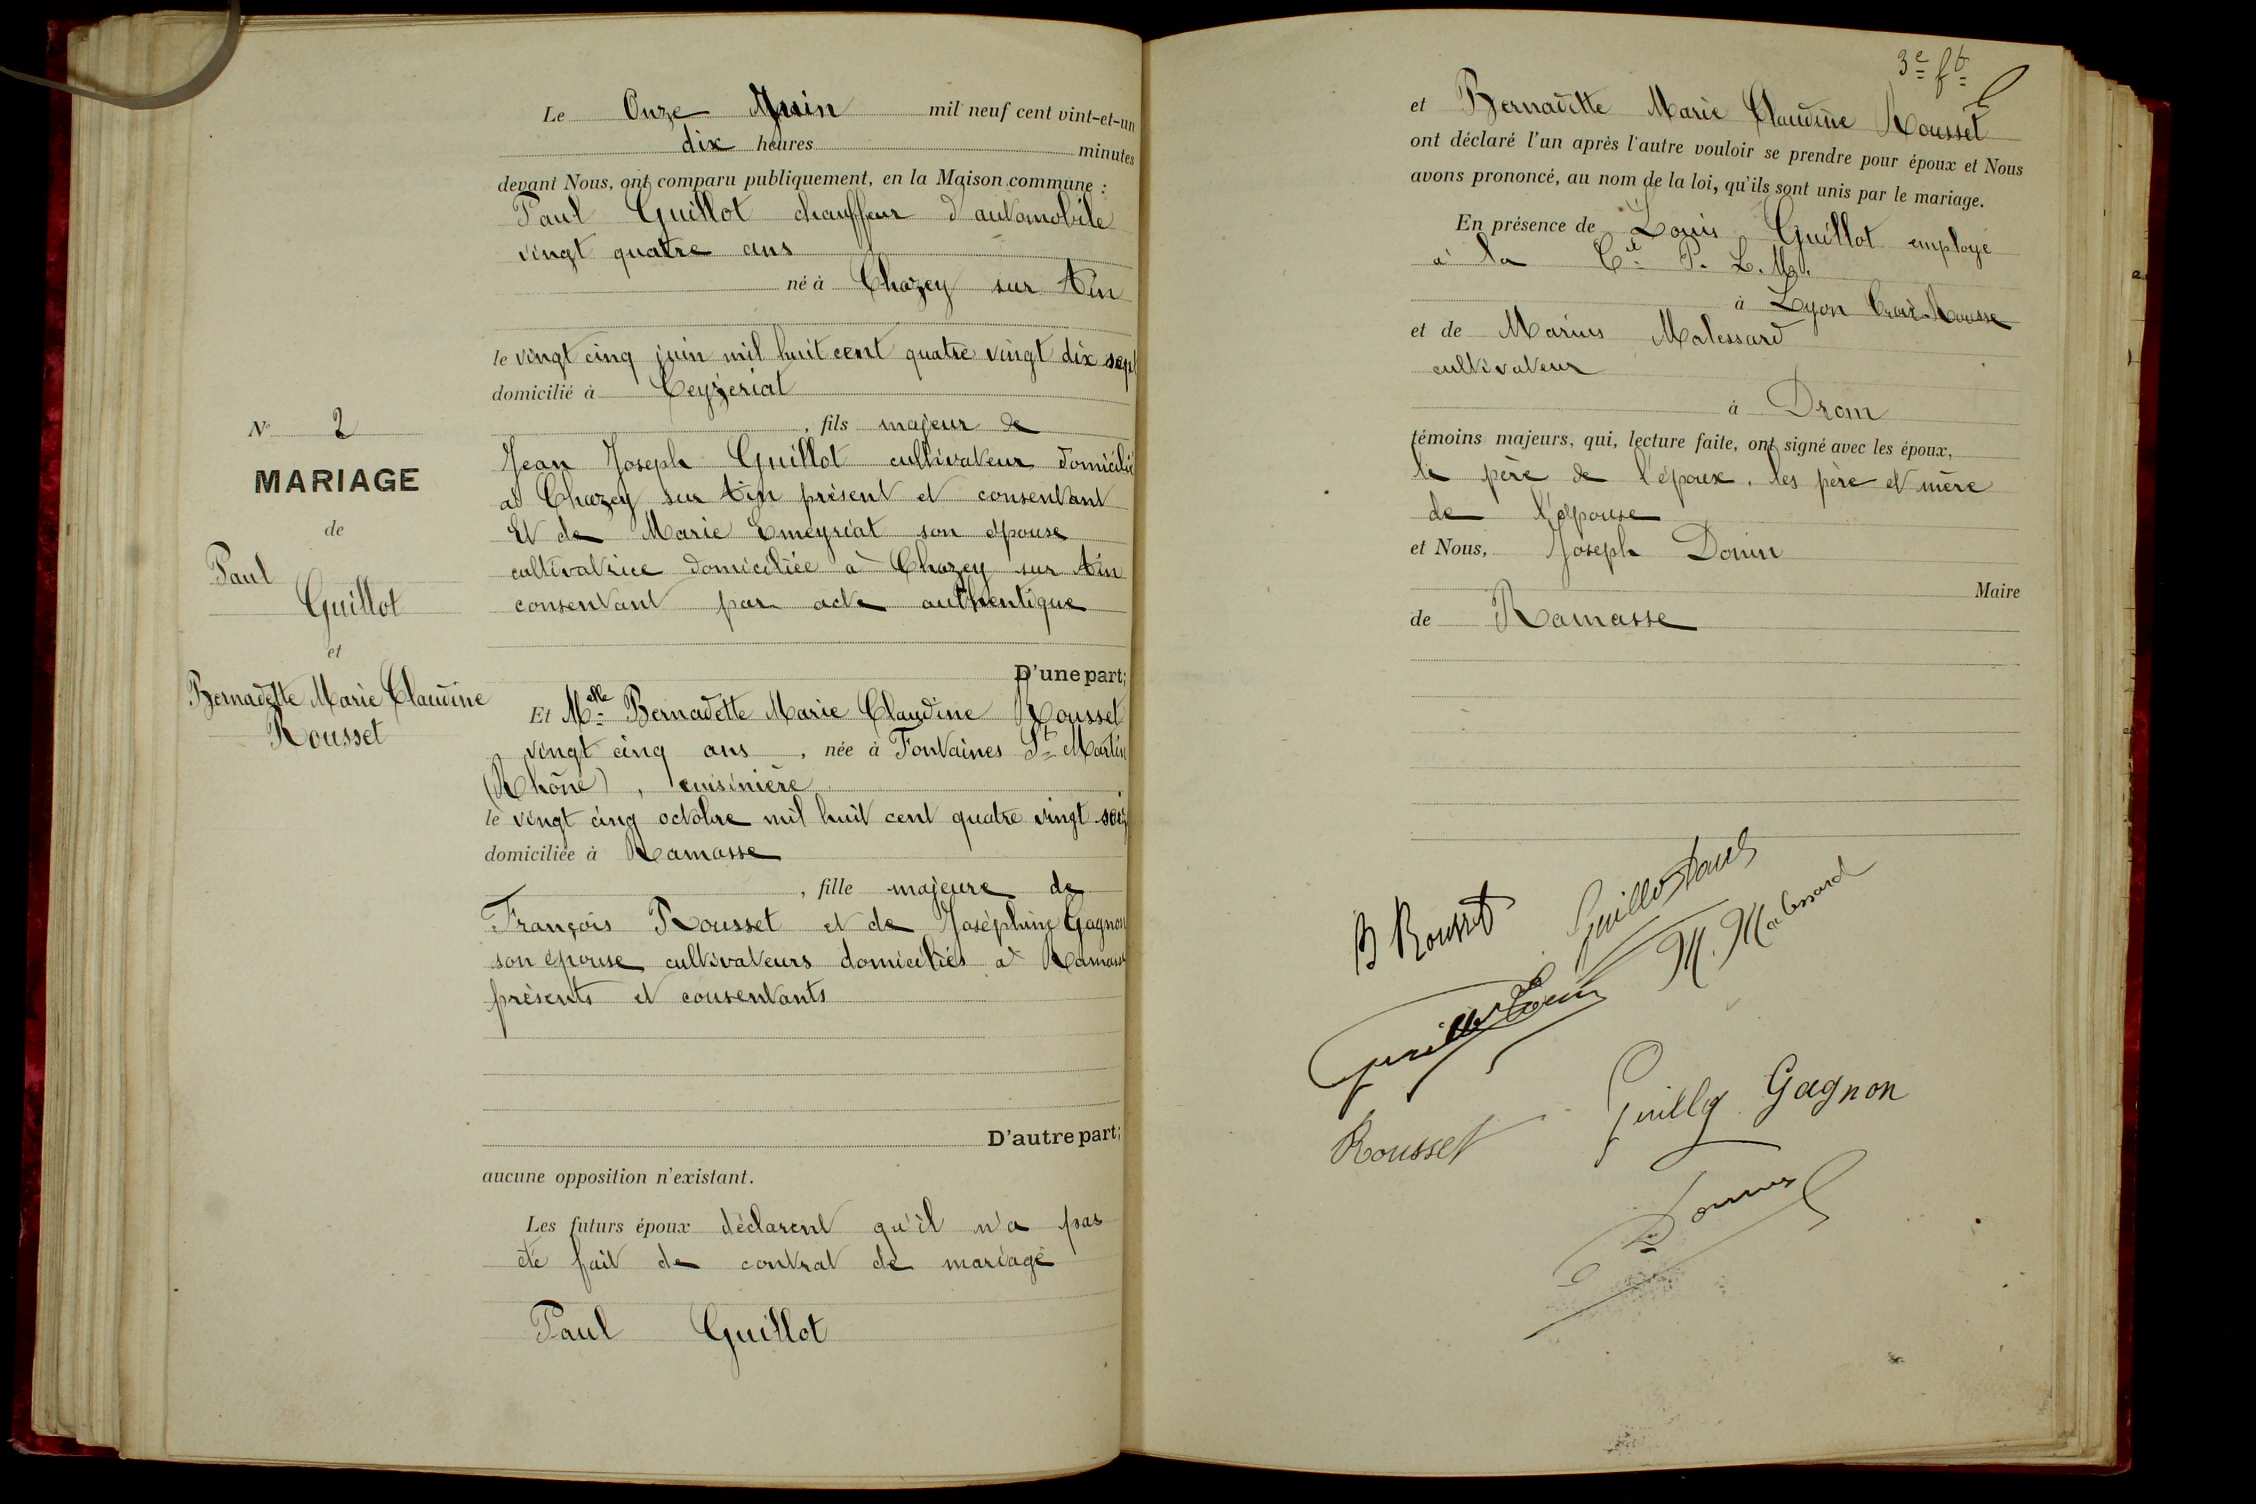 Le Onze Juin mil neuf cent vint-et-un
dix heures minutes
devant Nous, ont comparu publiquement, en la Maison commune :
Paul Guillot chauffeur d'automobile
vingt quatre ans
né à Chazey sur Ain
le vingt cinq juin mil huit cent quatre vingt dix sept
domicilié à Ceyzeriat
, fils majeur de
Jean Joseph Guillot cultivateur domicilié
à Chazey sur Ain présent et consentant
Et de Marie Emeyriat son épouse
cultivatrice domiciliée à Chazey sur Ain
consentant par acte authentique
D'une part;
Et Melle Bernadette Marie Claudine Rousset
vingt cinq ans , née à Fontaines St Martin
(Rhône) , cuisinière
le vingt cinq octobre mil huit cent quatre vingt seiz
domiciliée à Ramasse
, fille majeure de
François Rousset et de Joséphine Gagnon
son épouse cultivateurs domiciliés à Ramasse
présents et consentants
D'autre part;
aucune opposition n'existant.
Les futurs époux déclarent qu'il n'a pas
été fait de contrat de mariage
Paul Guillot
No 2
MARIAGE
de
Paul
Guillot
et
Bernadette Marie Claudine
Rousset
3e ft
et Bernadette Marie Claudine Rousset
ont déclaré l'un après l'autre vouloir se prendre pour époux et Nous
avons prononcé, au nom de la loi, qu'ils sont unis par le mariage.
En présence de Louis Guillot employé
à la Cie P. L. M.
à Lyon Croix-Rousse
et de Marius Malessard
cultivateur
à Drom
témoins majeurs, qui, lecture faite, ont signé avec les époux,
le père de l'époux, les père et mère
de l'épouse
et Nous, Joseph Donin
Maire
de Ramasse
B Rousset Guillot Paul
Guillot Louis M. Malessard
Rousset Guillot Gagnon